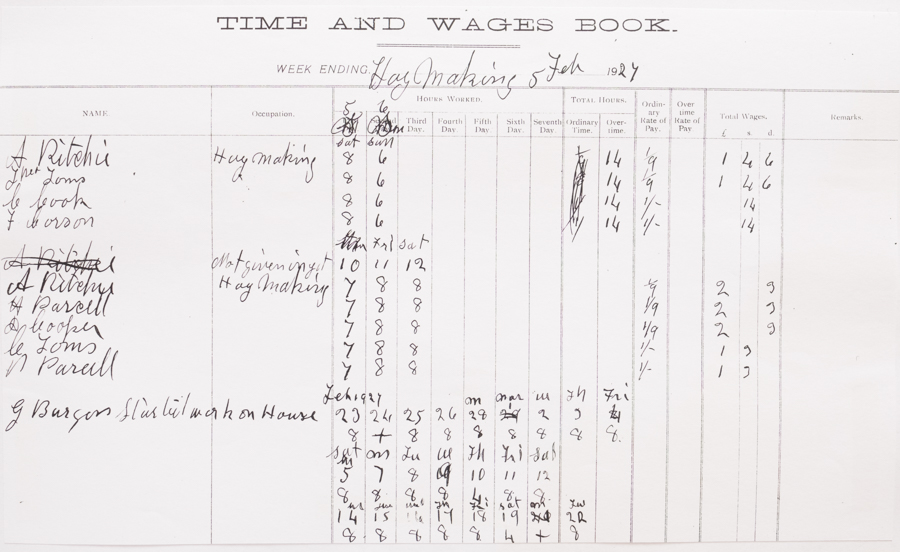 TIME AND WAGES BOOK.
WEEK ENDING Hay Making 5 Feb 1927
NAME. Occupation. HOURS WORKED. TOTAL HOURS. Ordinary Rate of Pay. Over time Rate of Pay. Total Wages. Remarks.
5 6
Third Day. Fourth Day. Fifth Day. Sixth Day. Seventh Day. Ordinary Time. Overtime. £ s. d.
Sat Sun
A Ritchie Hay making 8 6 14 1/9 1 4 6
Toms 8 6 14 1/9 1 4 6
C Cook 8 6 14 1/- 14
F 8 6 14 1/- 14
Fri Sat
A Ritchie Not given in yet 10 11 12
A Ritchie Hay Making 7 8 8 1/9 2 3
H Parcell 7 8 8 1/9 2 3
Cooper 7 8 8 1/9 2 3
C Toms 7 8 8 1/- 1 3
Parcell 7 8 8 1/- 1 3
Feb 1927 m mar w Th Fri
G Burgess work on House 23 24 25 26 28 2 3 4
8 + 8 8 8 8 8 8 8.
Sat m Tu w Th Fri Sat
5 7 8 9 10 11 12
8 8 8 8 4 8 8
Fri Sat m Tu
14 15 16 17 18 19 22
8 8 8 8 8 4 + 8